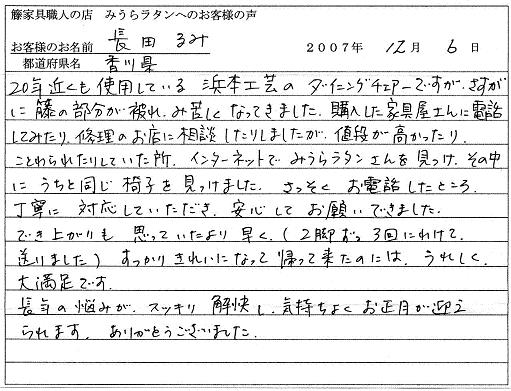 籐家具職人の店　みうらラタンへのお客様の声
お客様のお名前　長田 るみ　2007年 12月 6日
都道府県名　香川県
20年近くも使用している 浜本工芸の ダイニングチェアーですが、さすが
に 籐の部分が破れ、み苦しくなってきました。購入した家具屋さんに電話
してみたり、修理のお店に相談したりしましたが、値段が高かったり、
ことわられたりしていた所、インターネットで みうらラタンさんを見つけ、その中
に うちと同じ椅子を見つけました。さっそく お電話したところ、
丁寧に 対応していただき、安心して お願いできました。
でき上がりも 思っていたより早く、(2脚ずつ3回にわけて
送りました) すっかりきれいになって帰って来たのには、うれしく、
大満足です。
長年の悩みが、スッキリ 解決し、気持ちよく お正月が迎え
られます。ありがとうございました。